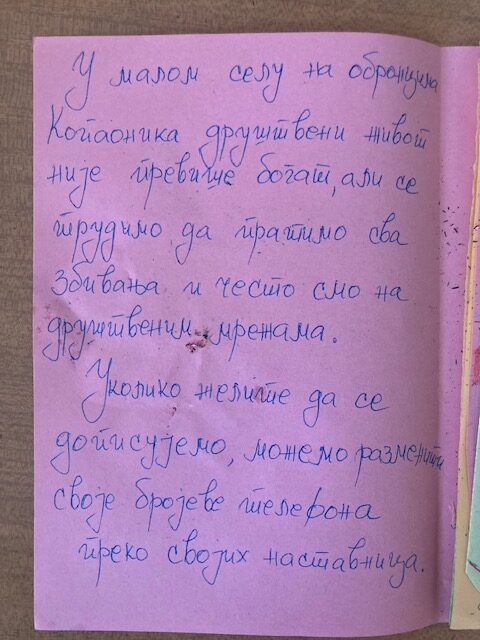 У малом селу на обронцима
Копаоника друштвени живот
није превише богат, али се
трудимо да пратимо сва
збивања и често смо на
друштвеним мрежама.
Уколико желите да се
дописујемо, можемо разменити
своје бројеве телефона
преко својих наставница.